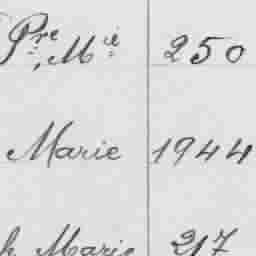 Pre, Mie 250
Marie 1944
h Marie 217